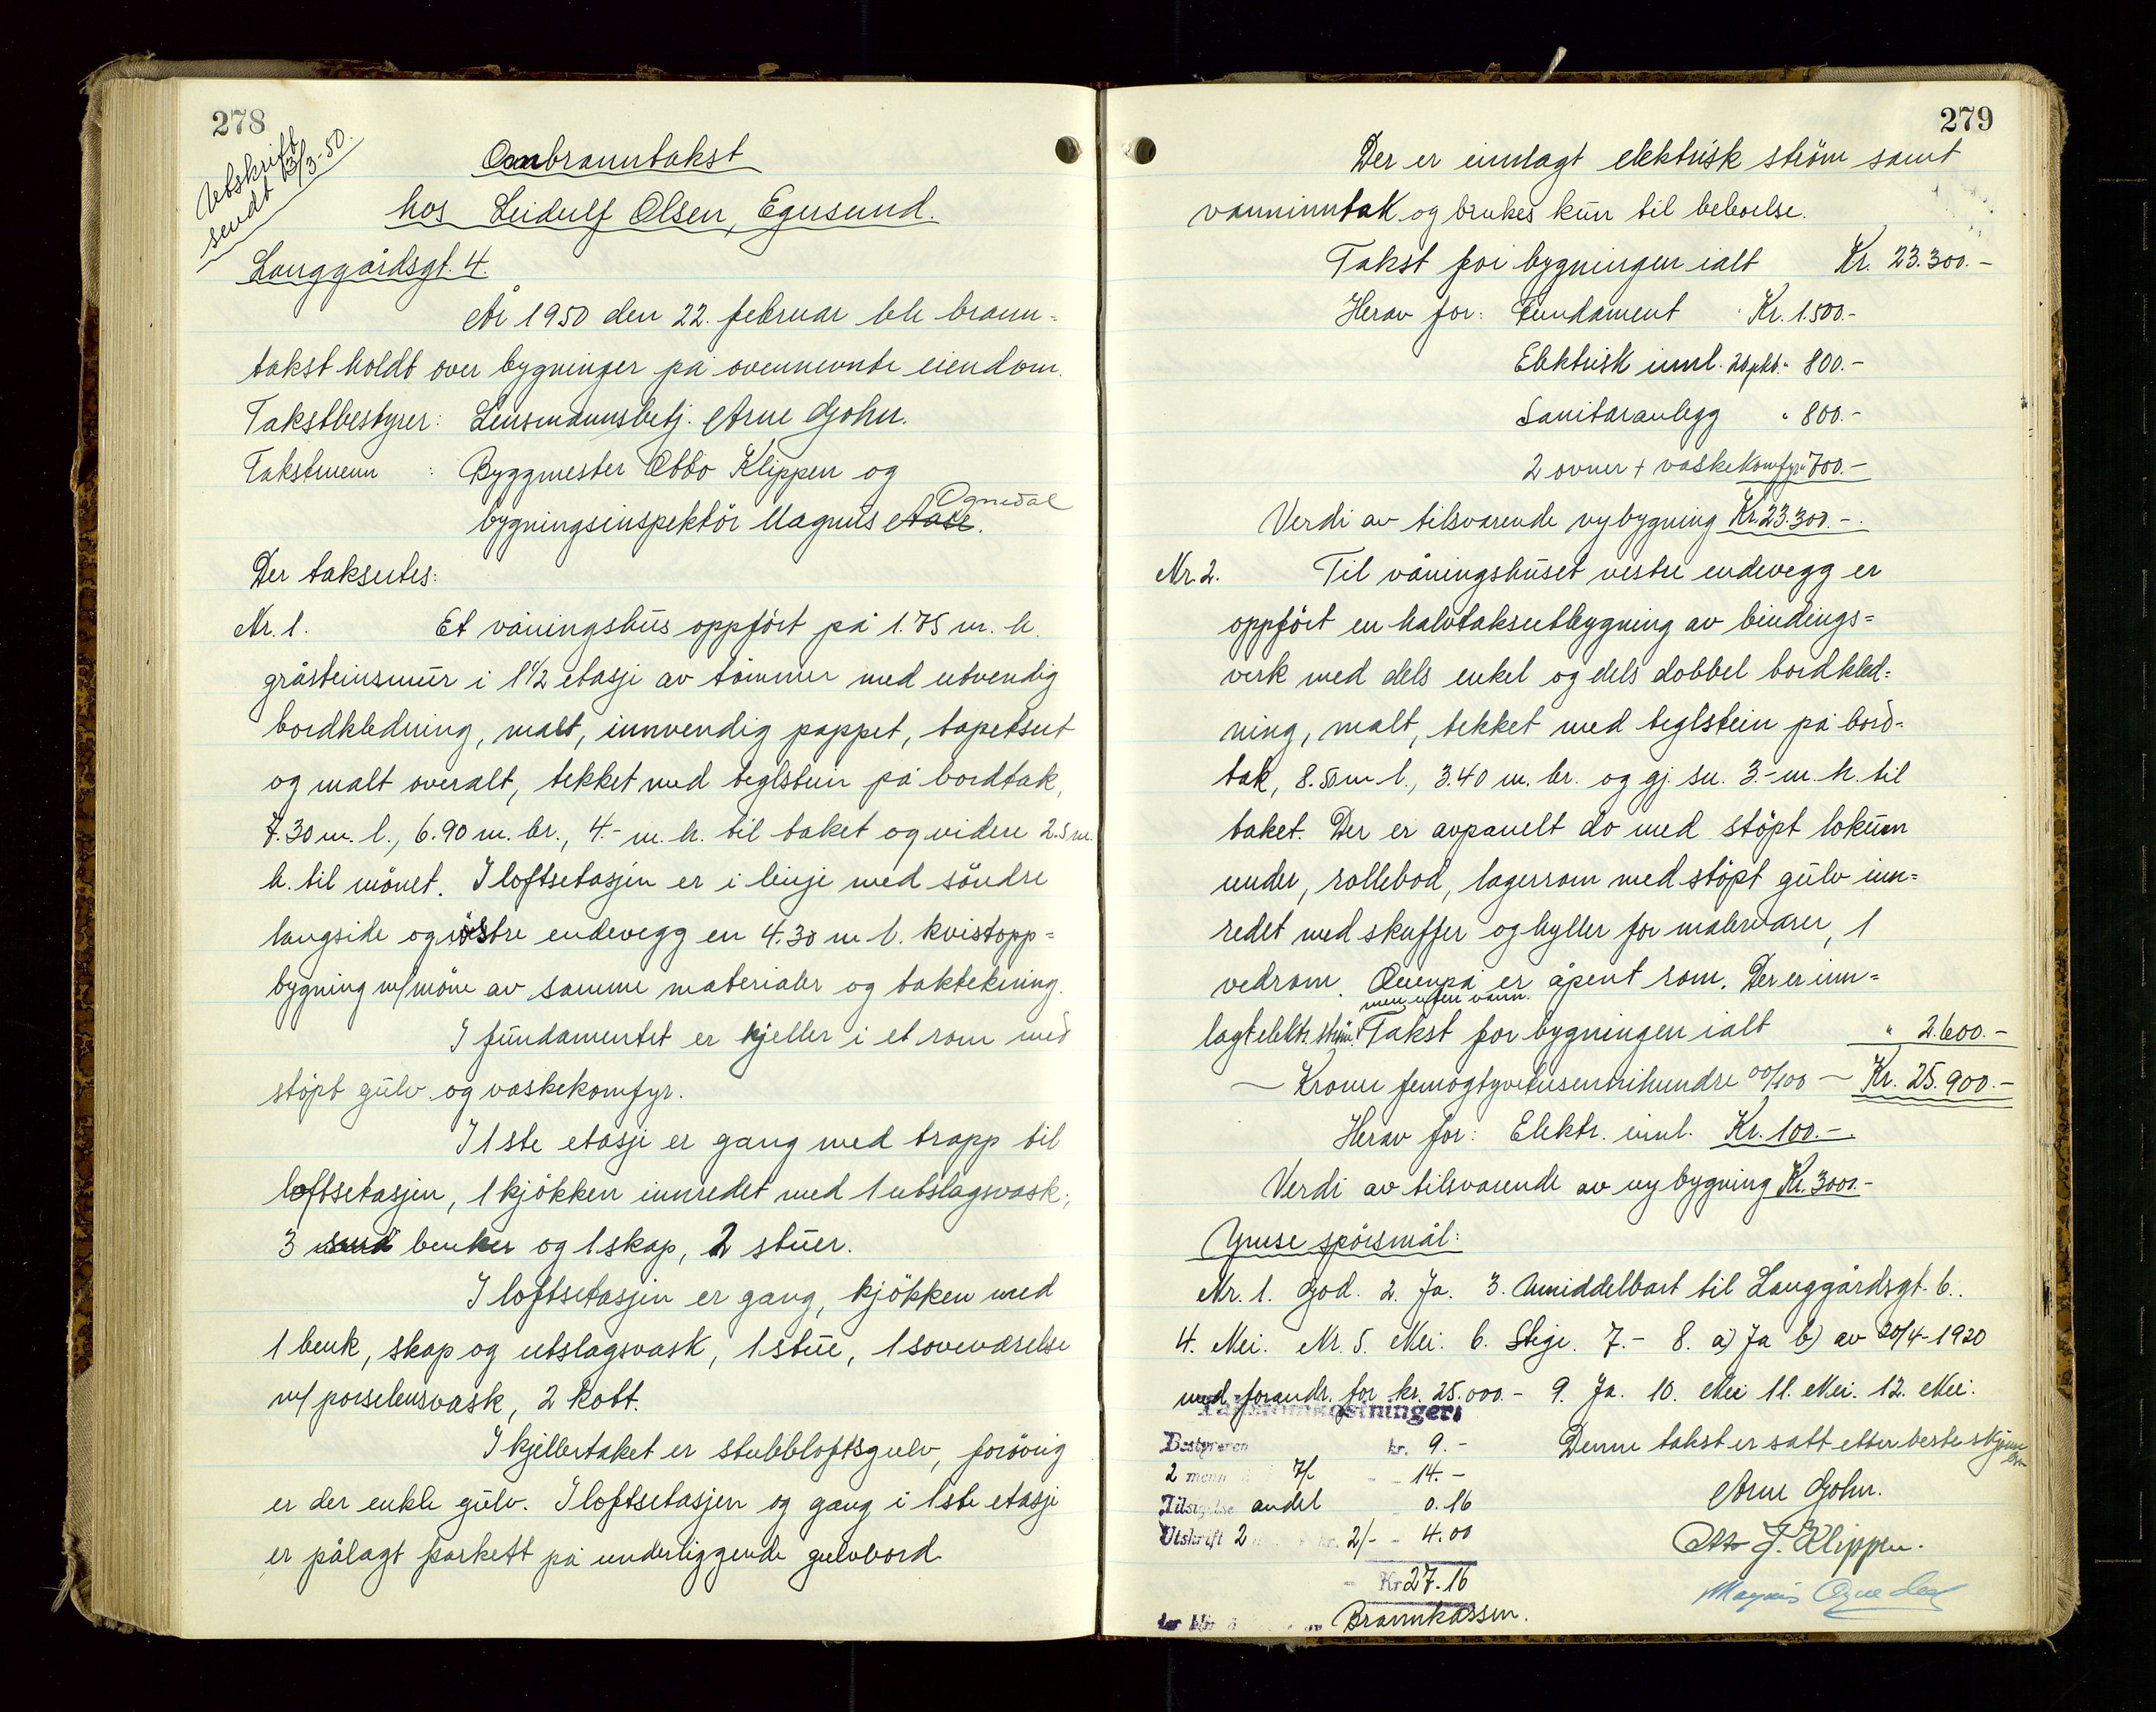 278
Utskrift
sendt 13/3-50.
Ombranntakst
hos Leidulf Olsen, Egersund.
Langgårdsgt. 4.
År 1950 den 22. februar ble brann=
takst holdt over bygninger på ovennevnte eiendom.
Takstbestyrer: Lensmannsbetj. Arne Gohn.
Takstmenn : Byggmester Otto Klippen og
Ognedal
bygningsinspektör Magnus Aase.
Der takseertes:
Nr. 1. Et våningshus oppfört på 1.75 m. h.
gråsteinsmur i 1 1/2 etasje av tömmer med utvendig
bordkledning, malt, innvendig pappet, tapetsert
og malt overalt, tekket med teglstein på bordtak,
7.30 m. l., 6.90 m. br., 4.- m. h. til taket og videre 2.5 m.
h. til mönet. I loftsetasjen er i linje med söndre
langside og östre endevegg en 4.30 m l. kvistopp=
bygning m/möne av samme materialer og taktekning.
I fundamentet er kjeller i et rom med
stöpt gulv og vaskekomfyr.
I 1ste etasje er gang med trapp til
loftsetasjen, 1 kjökken innredet med 1 utslagsvask,
3 benker og 1 skap, 2 stuer.
I loftsetasjen er gang, kjökken med
1 benk, skap og utslagsvask, 1 stue, 1 soveværelse
m/ porselensvask, 2 kott.
I kjellertaket er stubbloftsgulv, forövrig
er der enkle gulv. I loftsetasjen og gang i 1ste etasje
er pålagt parkett på underliggende gulvbord.
279
Der er innlagt elektrisk ström samt
vanninntak og brukes kun til beboelse.
Takst for bygningen ialt Kr. 23.300.-
Herav for: Fundament Kr. 1.500.-
Elektrisk innl. 20 pkt. " 800.-
Sanitæranlegg " 800.-
2 ovner + vaskekomfyr " 700.-
Verdi av tilsvarende nybygning Kr. 23.300.-
Nr. 2. Til våningshuset vestre endevegg er
oppfört en halvtaksutbygning av bindings=
verk med dels enkel og dels dobbel bordkled=
ning, malt, tekket med teglstein på bord=
tak, 8.50 m l., 3.40 m. br. og gj. sn. 3.- m. h. til
taket. Der er avpanelt do med stöpt lokum
under, rollebod, lagerrom med stöpt gulv inn=
redet med skuffer og hyller for malervarer, 1
vedrom. Ovenpå er åpent rom. Der er inn=
men uten vann.
lagt elektr. ström. Takst for bygningen ialt " 2.600.-
- Kroner femogtyvetusennihundre 00/100 - Kr. 25.900.-
Herav for: Elektr. innl. Kr. 100.-
Verdi av tilsvarende av nybygning Kr. 3000.-
Ymse spörsmål:
Nr. 1. God. 2. Ja. 3. Umiddelbart til Langgårdsgt. 6.
4. Nei. Nr. 5. Nei. 6. Stige. 7. - 8. a) Ja b) av 20/4-1920
med forandr. for kr. 25.000.- 9. Ja. 10. Nei 11. Nei. 12. Nei.
Takstomkostninger:
Bestyreren kr. 9.-
2 menn à 7/- - 14.-
Tilsigelse andel 0.16
Utskrift 2 kr. 2/- - 4.00
Kr 27.16
Brannkassen.
Denne takst er satt etter beste skjönn
Arne Gohn.
Otto J. Klippen.
Magnus Ognedal